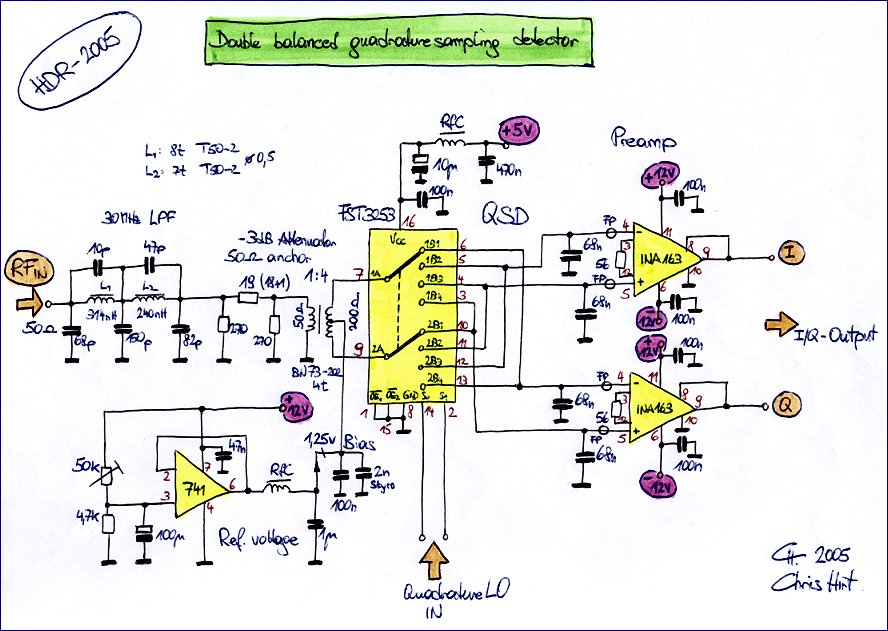 HDR-2005
Double balanced quadrature sampling detector
L1: 8t T50-2
L2: 7t T50-2
ø 0,5
30MHz LPF
10p
47p
L1
L2
314nH
240nH
RF IN
50Ω
68p
150p
82p
-3dB Attenuator
50Ω anchor
18 (18+1)
270
270
1:4
50Ω
200Ω
BN73-202
4t
RFC
+5V
10µ
470n
100n
16
FST3253
QSD
Vcc
7
1A
9
2A
1B1
6
1B2
5
1B3
4
1B4
3
2B1
10
2B2
11
2B3
12
2B4
13
OE1
OE2
GND
S0
S1
1
15
8
14
2
Preamp
+12V
100n
FP
4
11
68n
3
56
12
INA163
8
9
10
5
6
68n
12V
-
100n
I
I/Q-Output
+
12V
100n
FP
4
11
68n
3
56
12
INA163
8
9
10
FP
5
6
68n
100n
-
12V
Q
+
12V
50k
4,7k
100µ
2
3
741
7
6
4
47n
RFC
1,25V
Bias
100n
2n
Styro
1µ
Ref. voltage
Quadrature LO
IN
CH. 2005
Chris Hirt